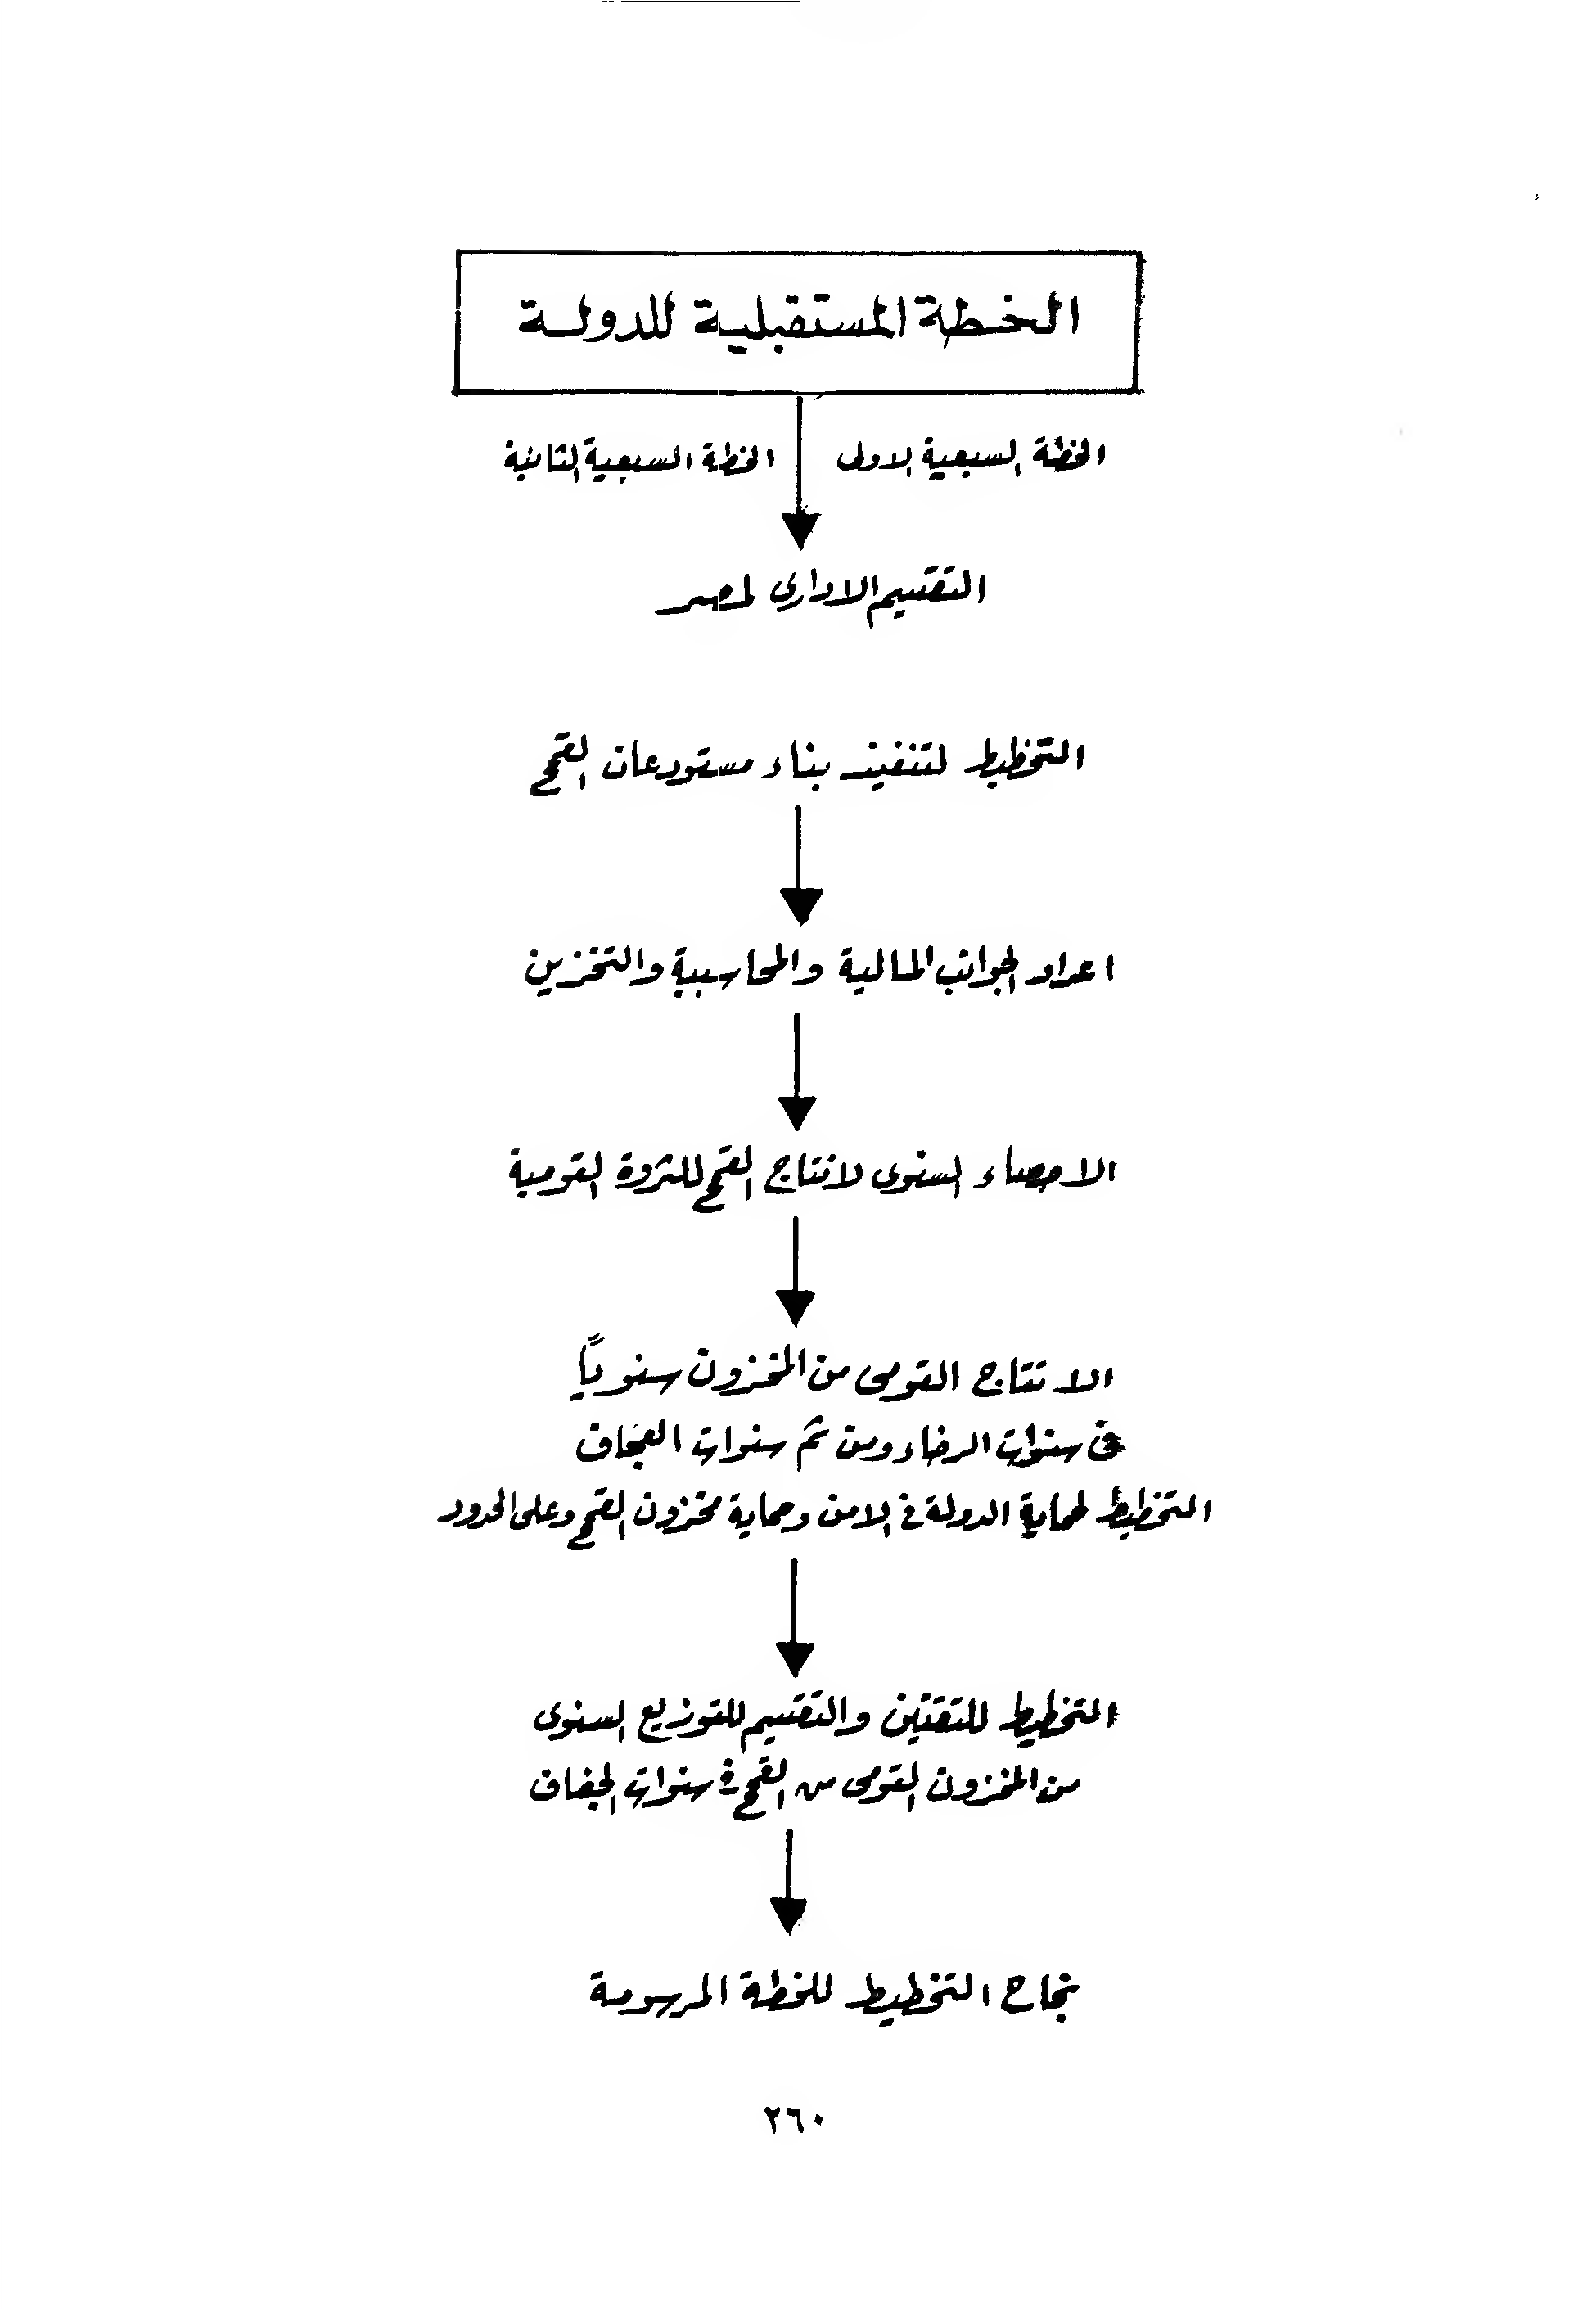 الخطة المستقبلية للدولة
الخطة السبعية الاولى
الخطة السبعية الثانية
التقسيم الادارى لمصر
التخطيط لتنفيذ بناء مستودعات القمح
اعداد الجوانب المالية والمحاسبية والتخزين
الاحصاء السنوى لانتاج القمح للثروة القومية
الانتاج القومى من المخزون سنوياً
فى سنوات الرخاء ومن ثم سنوات العجاف
التخطيط لحماية الدولة فى الامن وحماية مخزون القمح وعلى الحدود
التخطيط للتقنين والتقسيم للتوزيع السنوى
من المخزون القومى من القمح فى سنوات الجفاف
نجاح التخطيط للخطة المرسومة
٢٦٠